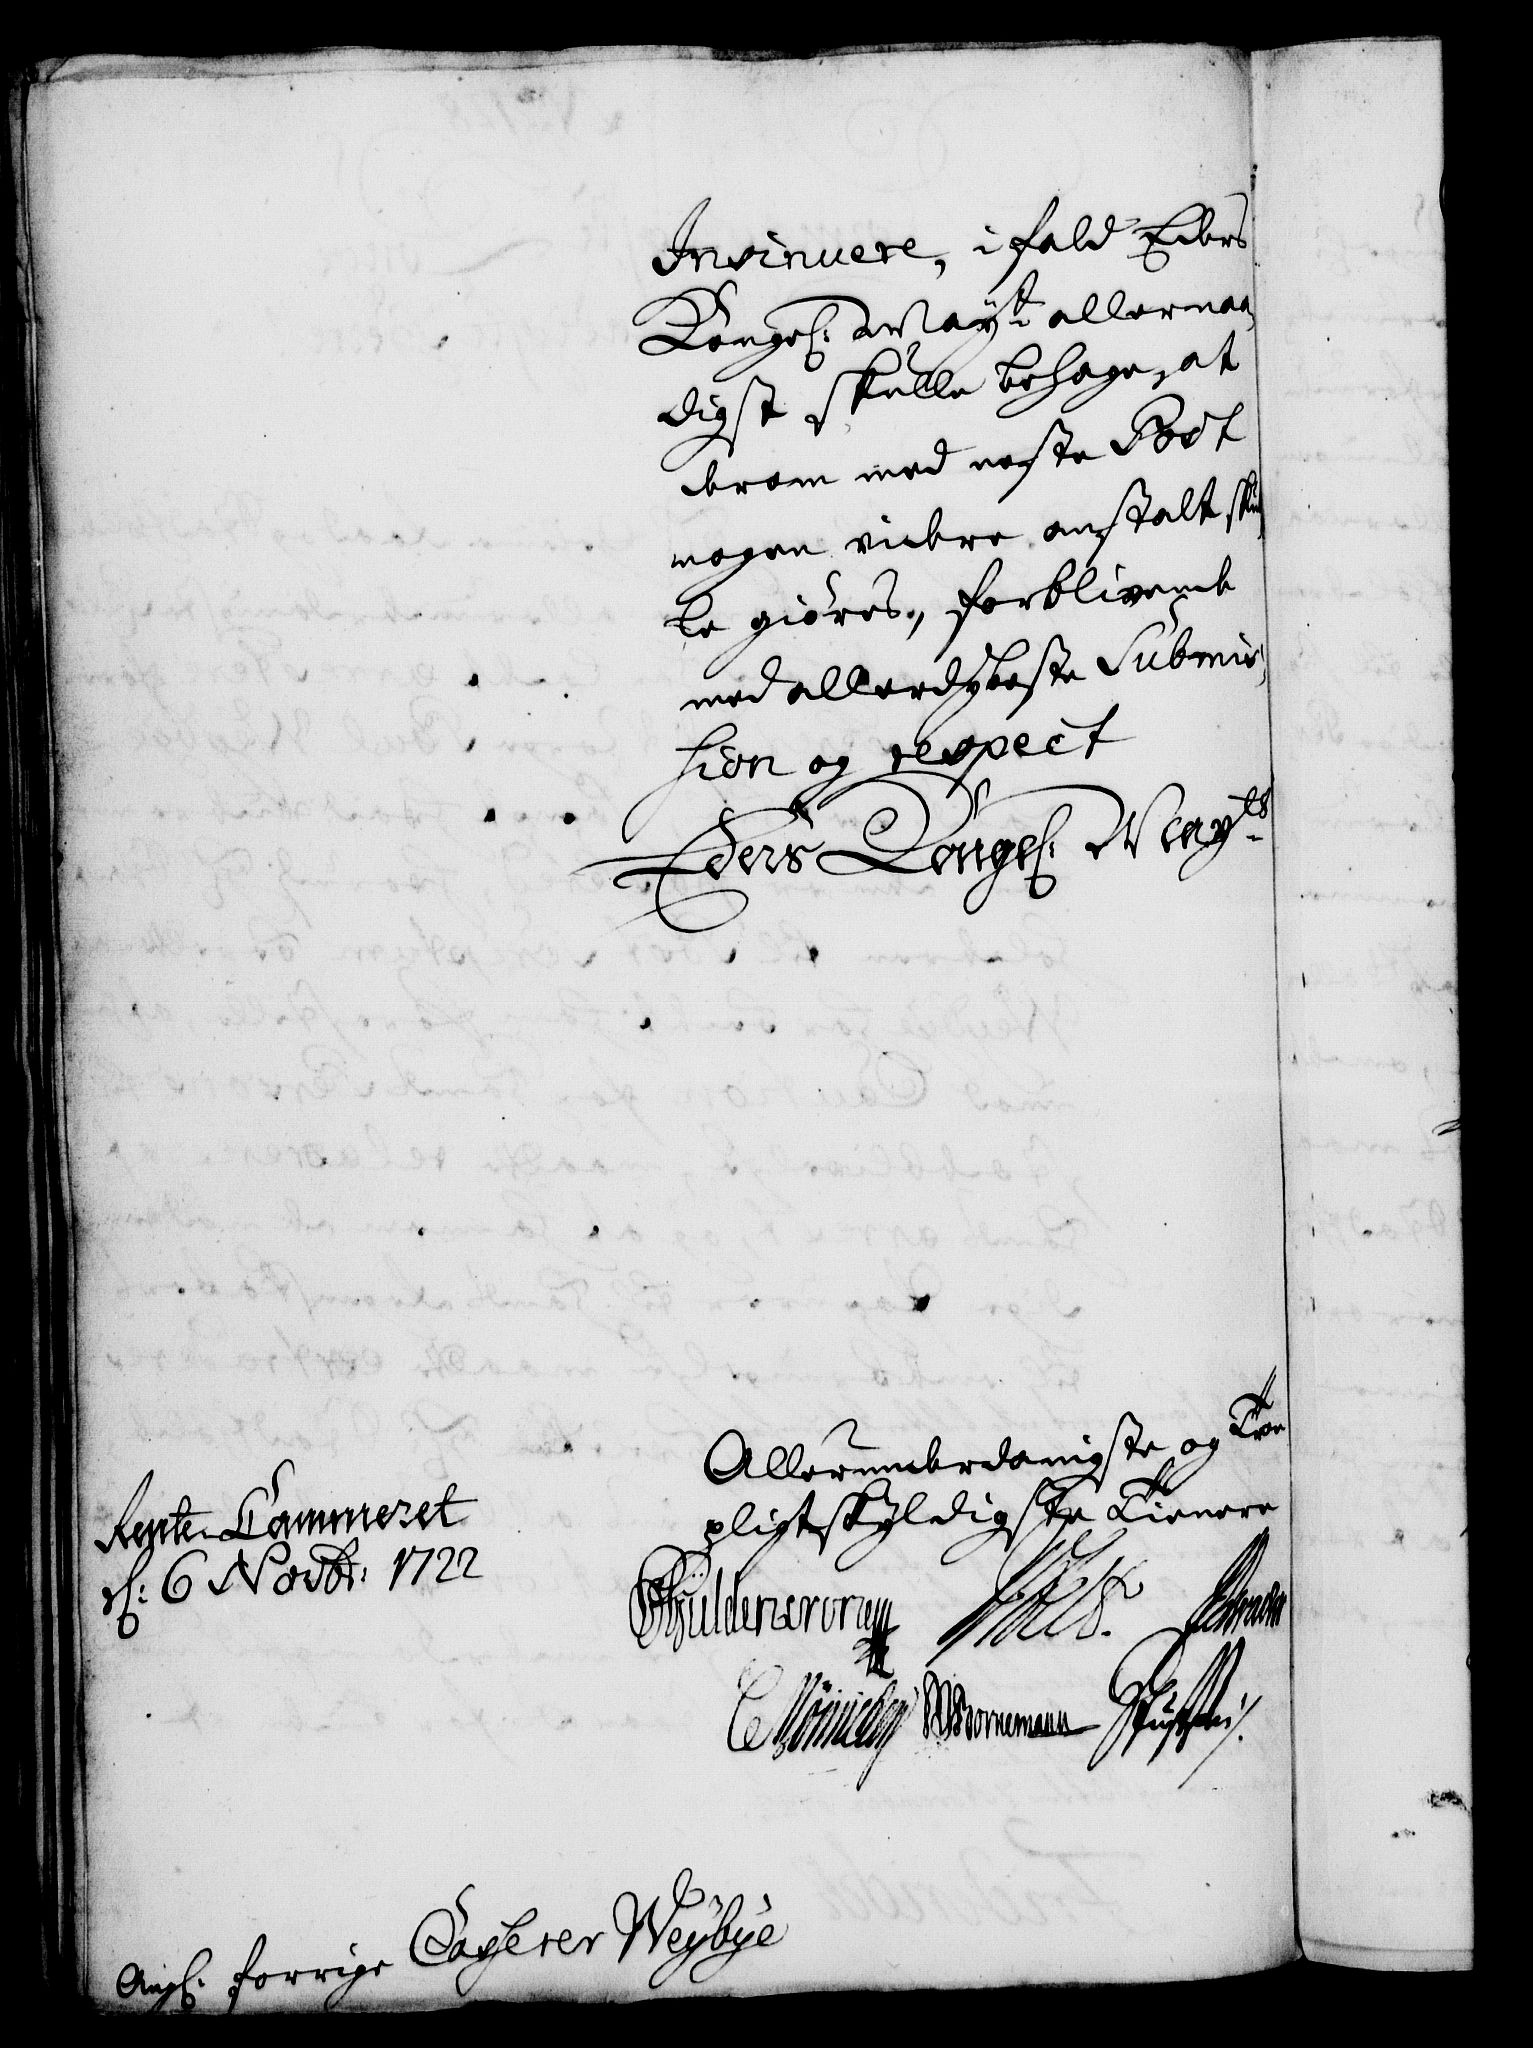 Insinuere, i fald Eders
Kongel: May:t allernaa,
digst skulle behage, at
derom med neste Post
nogen videre anstalt skul,
le giöres, forblivende
med allerdybeste Submis,
sion og respect
Eders Kongel: May:ts
Allerunderdanigste og Troe
pligtskyldigste Tienere
Rente Cammeret
d: 6 Novbr: 1722
Güldencrone
C Mönnichen WBornemann
Angl: forrige Casserer Weybye